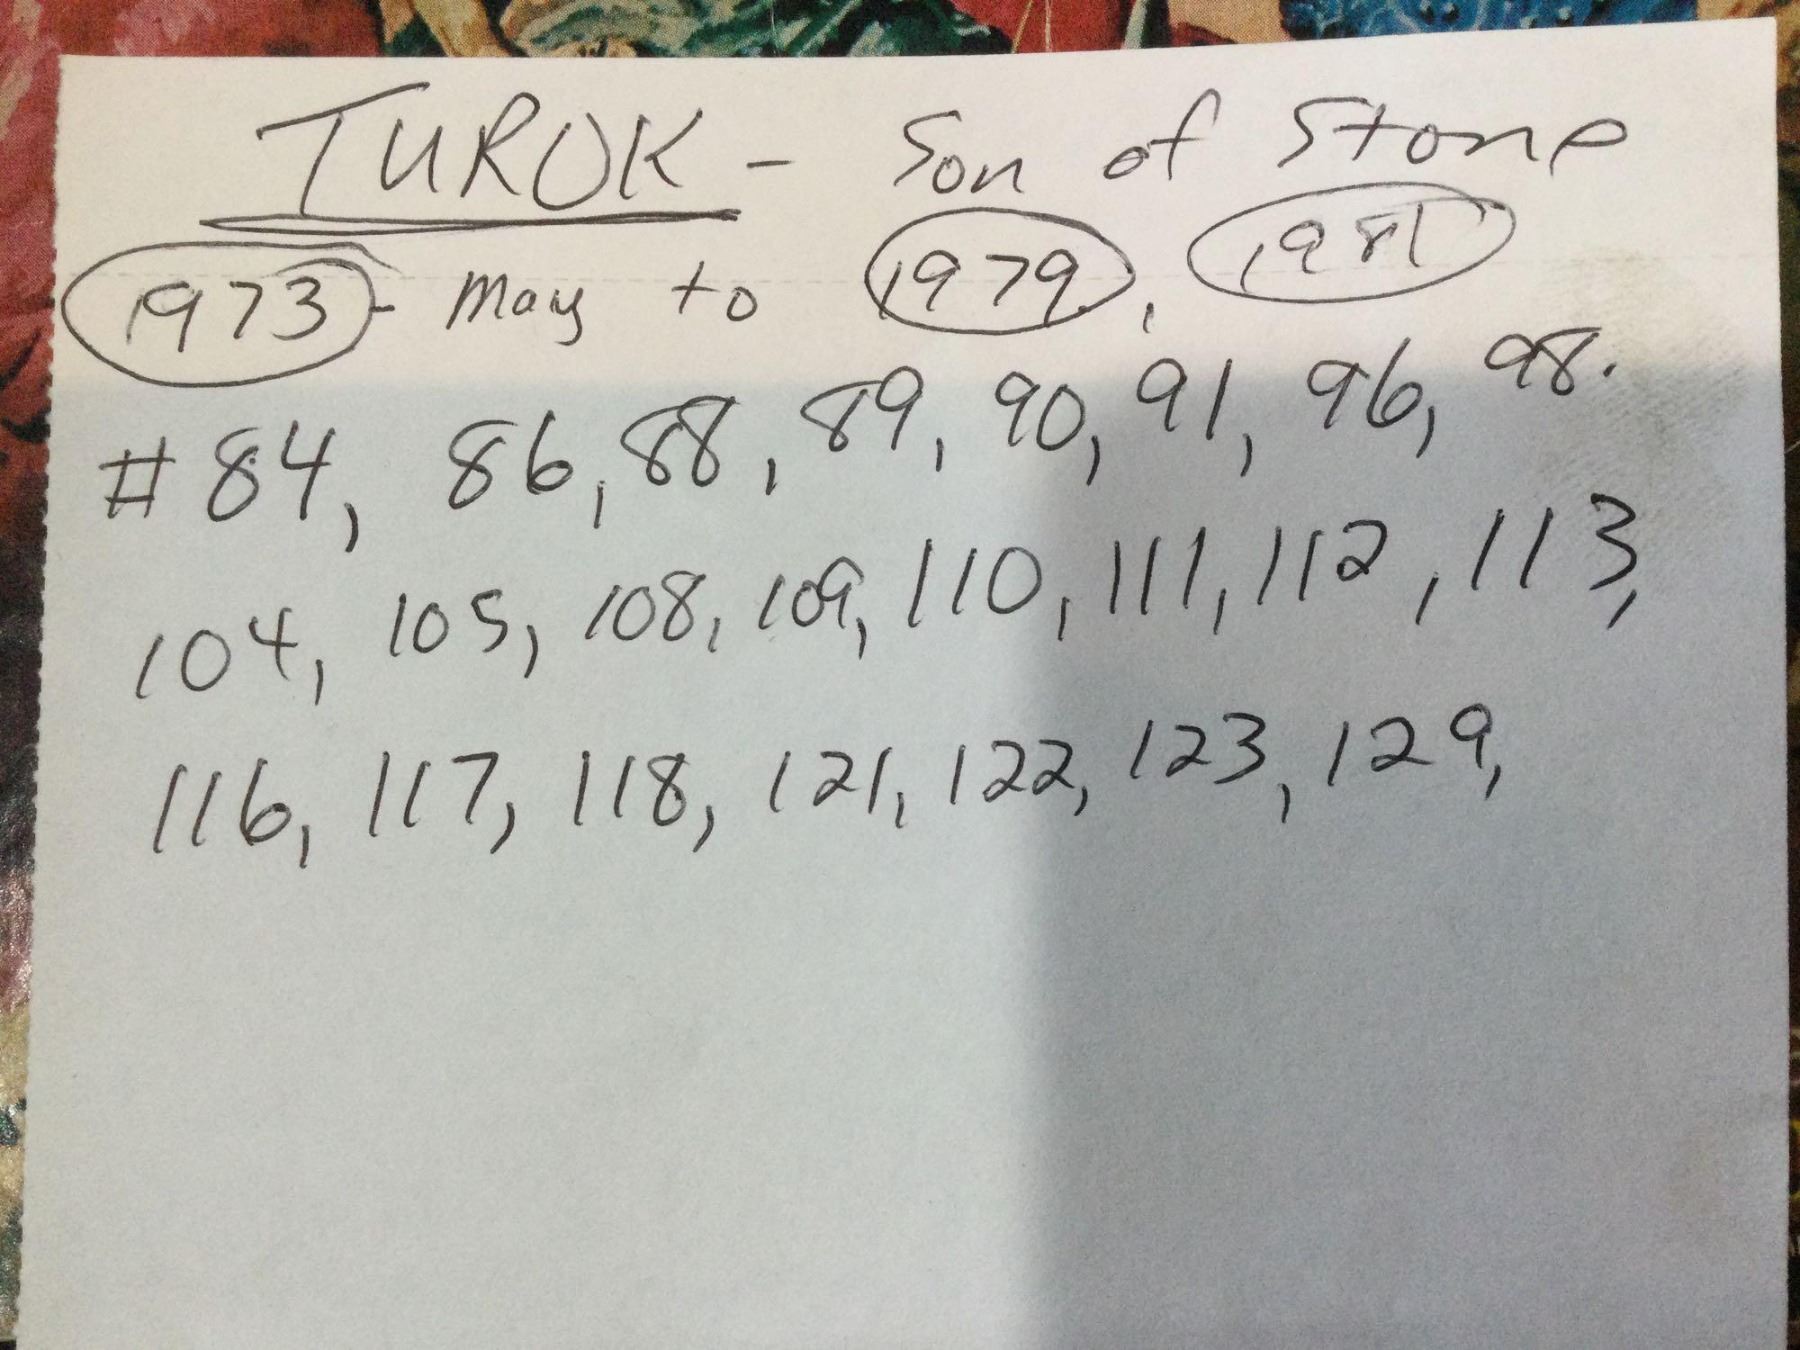 TUROK - Son of Stone
1973 - May to 1979, 1981
#84, 86, 88, 89, 90, 91, 96, 98.
104, 105, 108, 109, 110, 111, 112, 113,
116, 117, 118, 121, 122, 123, 129,